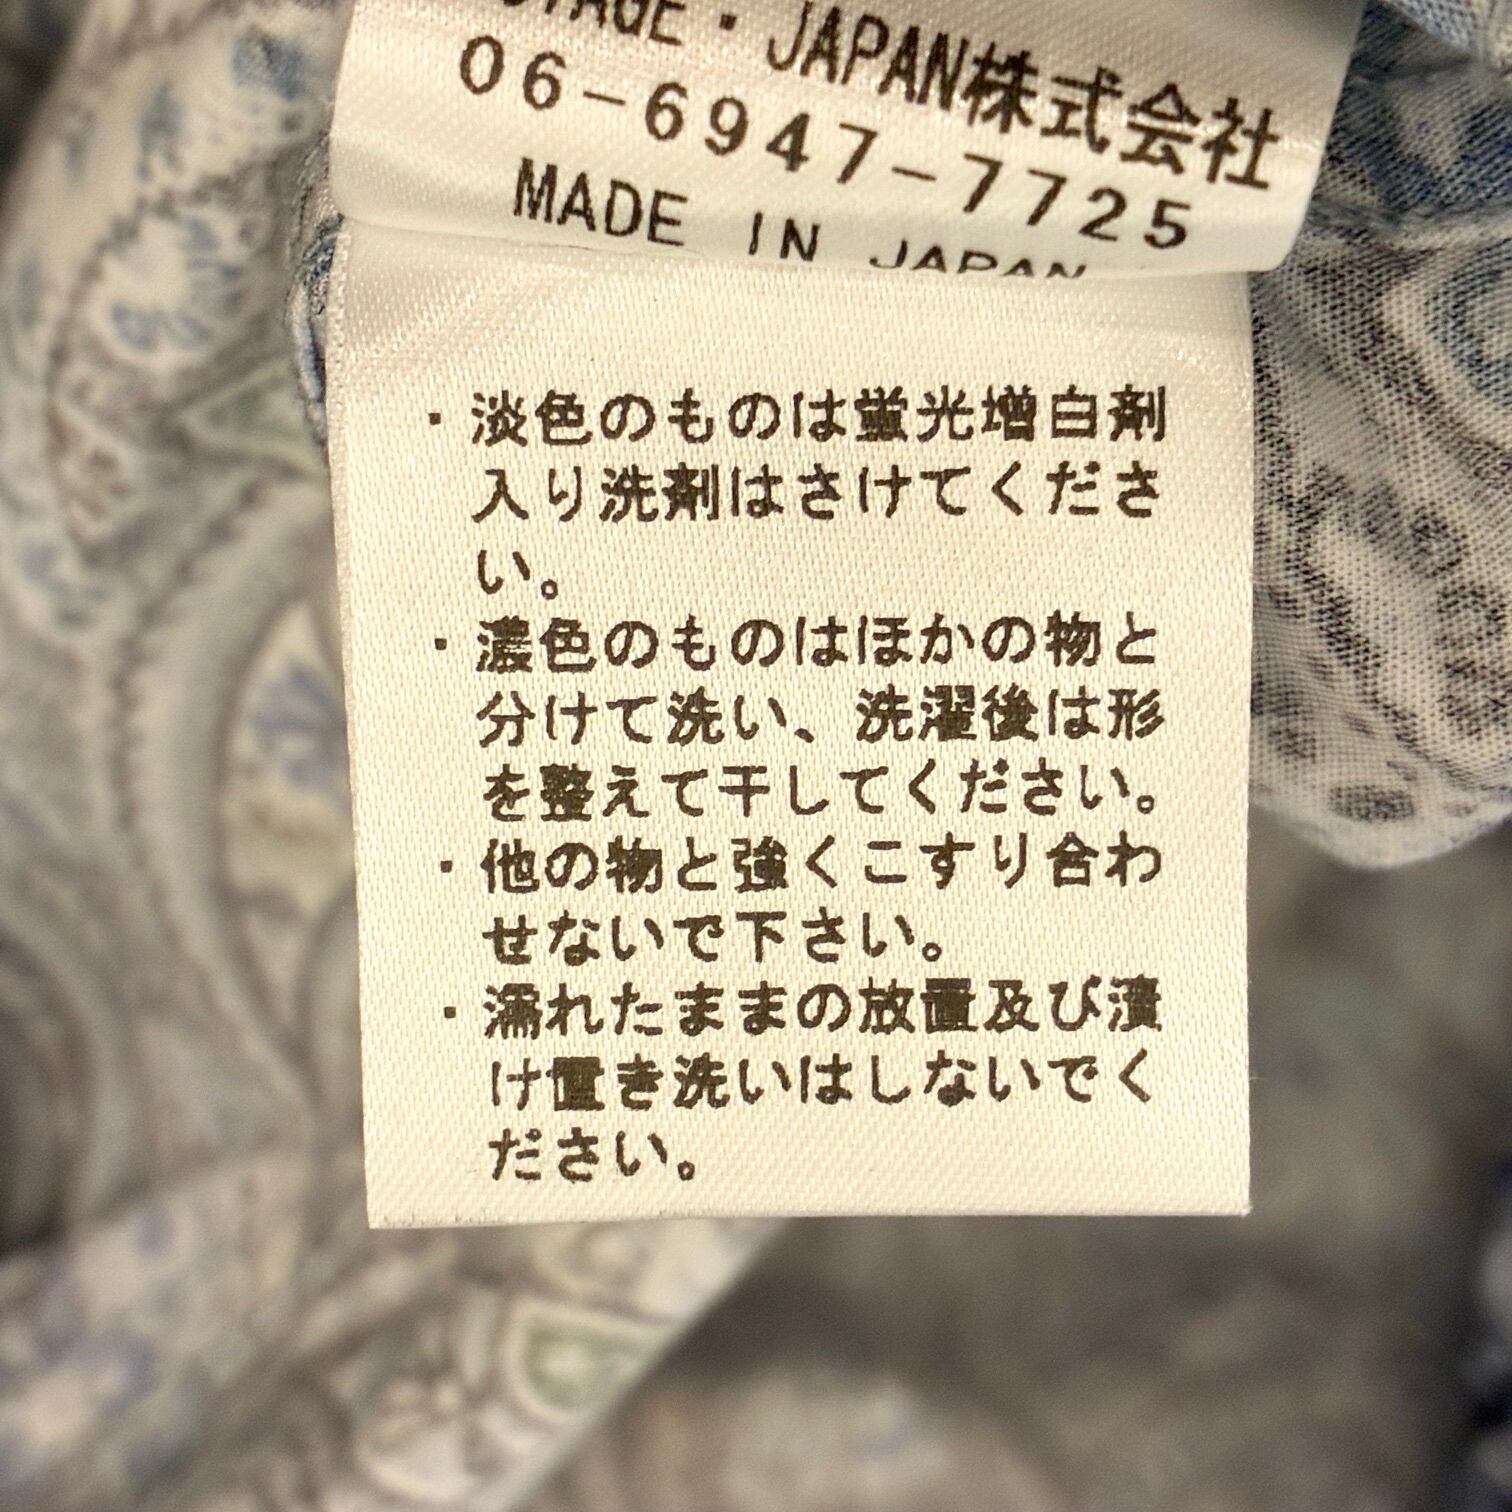 ・JAPAN株式会社
06-6947-7725
MADE IN JAPAN
・淡色のものは蛍光増白剤
入り洗剤はさけてくださ
い。
・濃色のものはほかの物と
分けて洗い、洗濯後は形
を整えて干してください。
・他の物と強くこすり合わ
せないで下さい。
・濡れたままの放置及び漬
け置き洗いはしないでく
ださい。